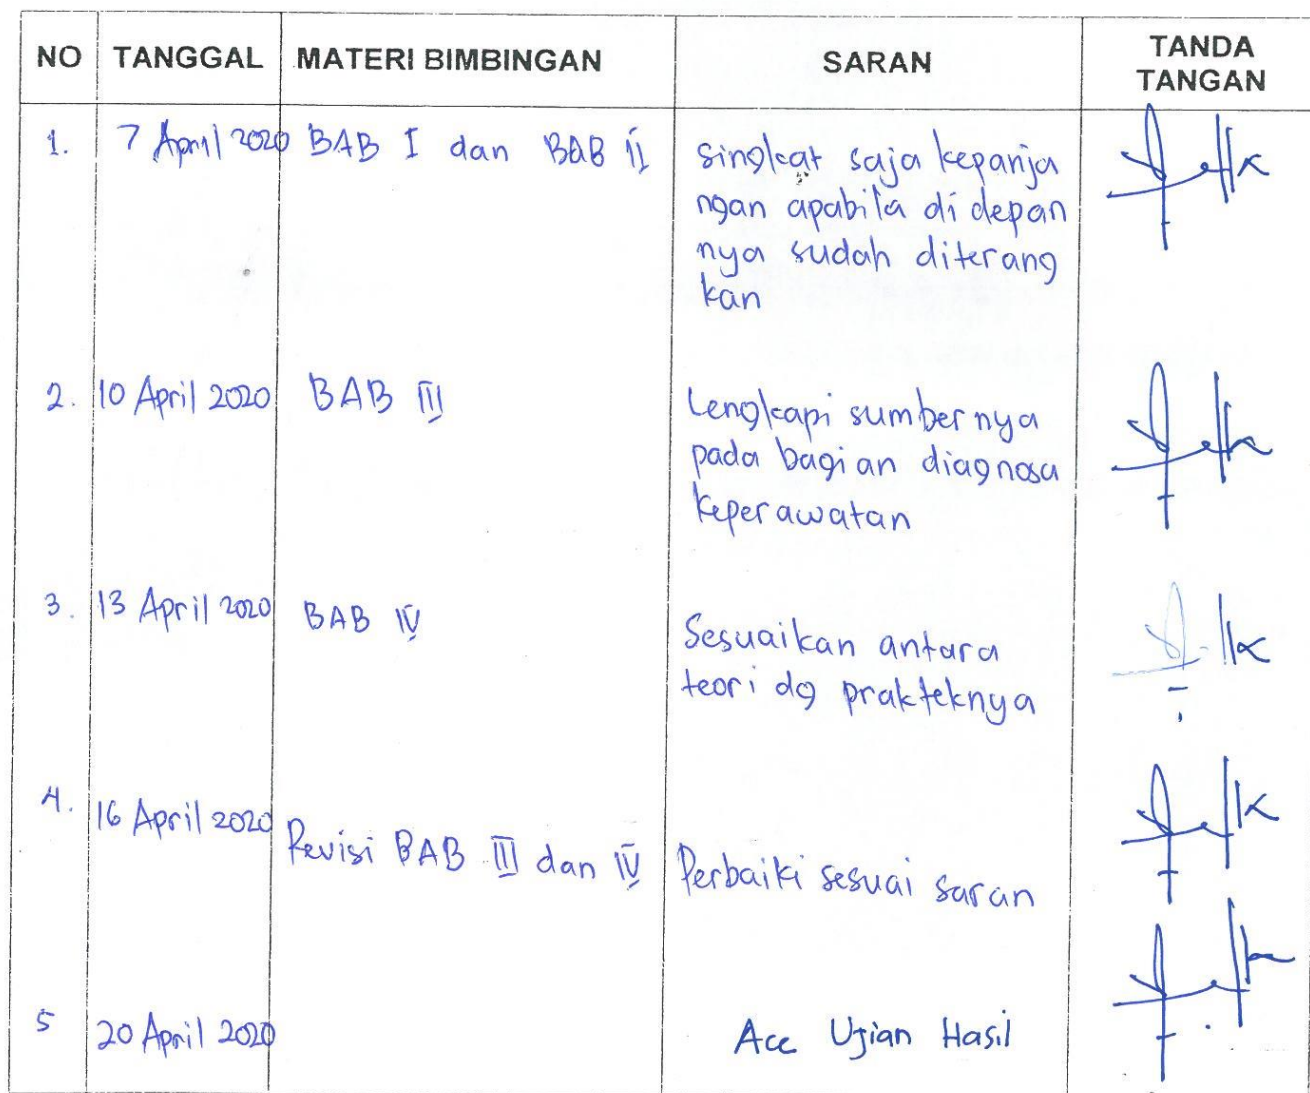 NO TANGGAL MATERI BIMBINGAN SARAN TANDA TANGAN
1. 7 April 2020 BAB I dan BAB II singkat saja kepanja
ngan apabila di depan
nya sudah diterang
kan
2. 10 April 2020 BAB III Lengkapi sumbernya
pada bagian diagnosa
keperawatan
3. 13 April 2020 BAB IV Sesuaikan antara
teori dg prakteknya
4. 16 April 2020 Revisi BAB III dan IV Perbaiki sesuai saran
5 20 April 2020 Acc Ujian Hasil